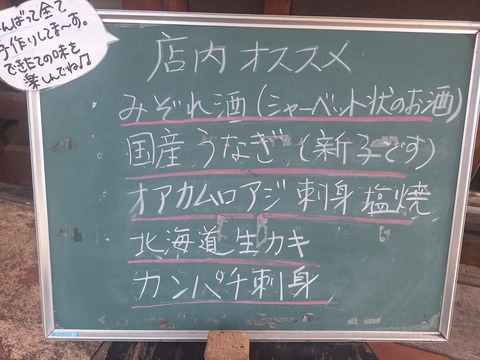 んばって全て
手作りしてま〜す。
できたての味を
楽しんでね♪
店内オススメ
みぞれ酒(シャーベット状のお酒)
国産うなぎ(新子です)
オアカムロアジ刺身 塩焼
北海道生カキ
カンパチ刺身